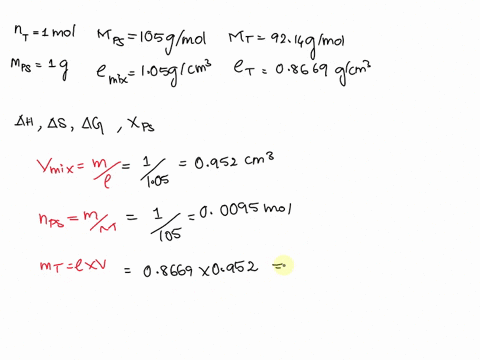 n_T = 1 mol M_PS = 105 g/mol M_T = 92.14 g/mol
m_PS = 1 g ρ_mix = 1.05 g/cm³ ρ_T = 0.8669 g/cm³
ΔH, ΔS, ΔG , X_PS
V_mix = m/ρ = 1/1.05 = 0.952 cm³
n_PS = m/M = 1/105 = 0.0095 mol
m_T = ρ×V = 0.8669 × 0.952 =